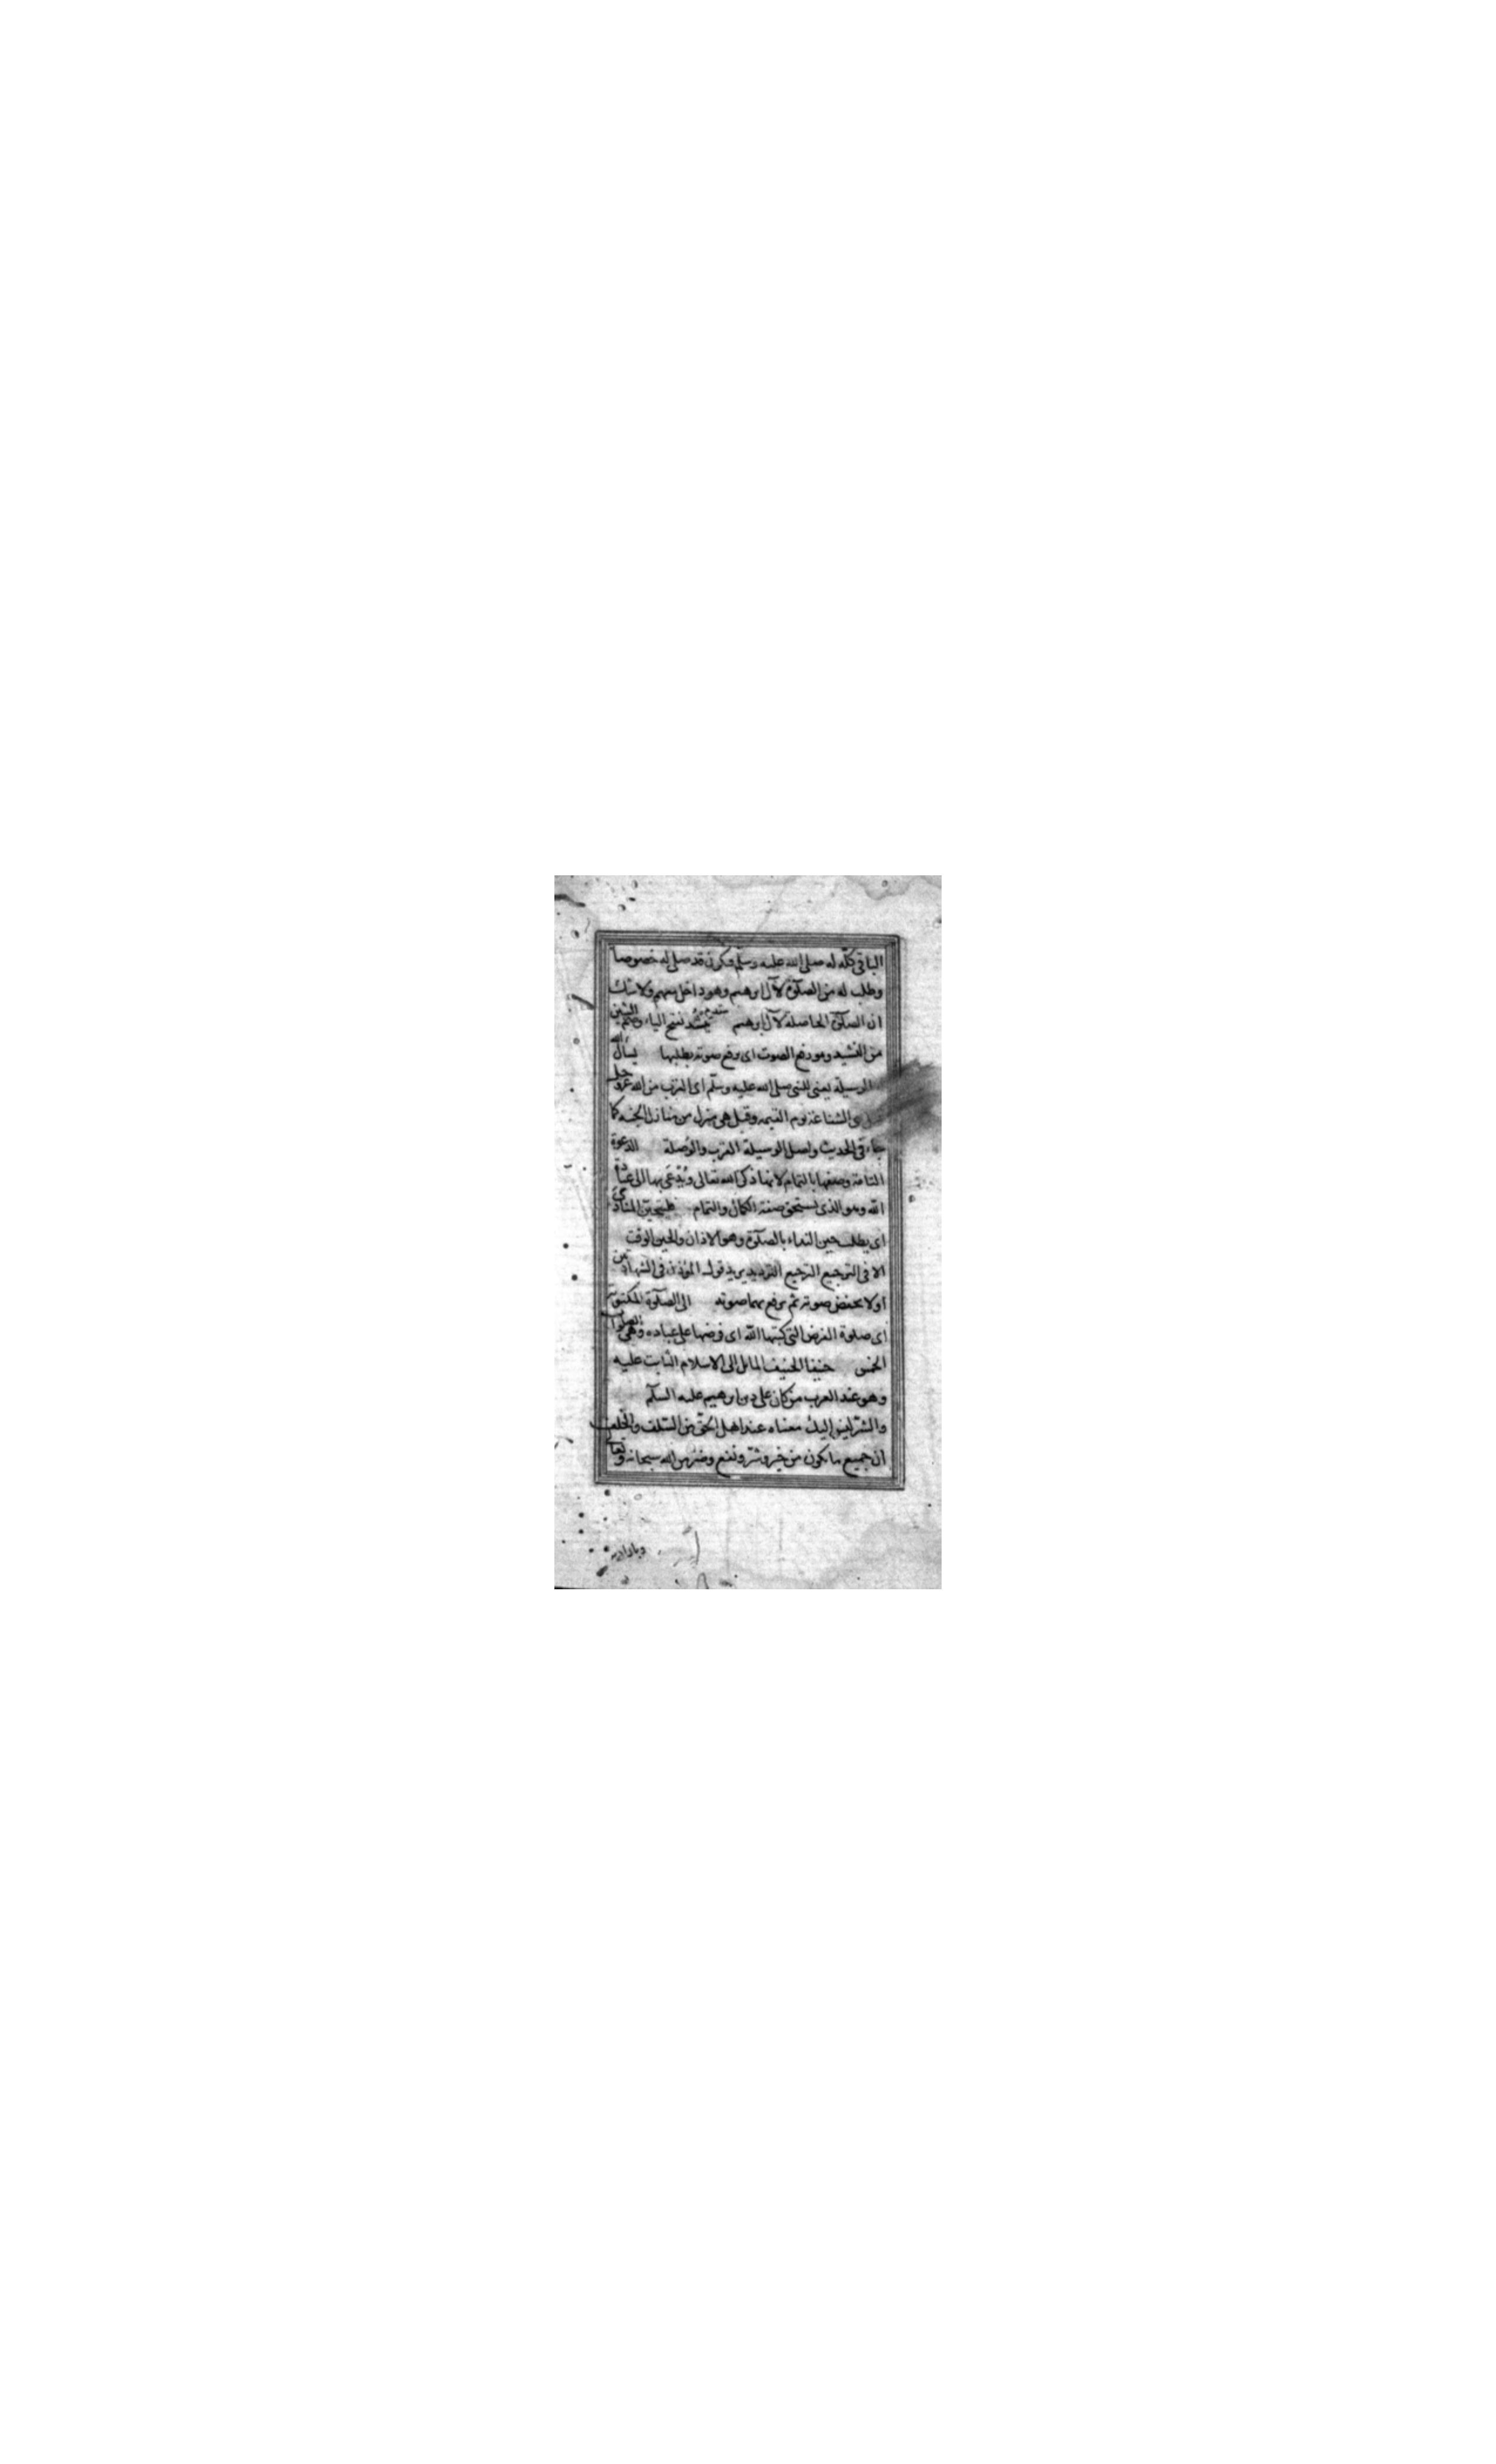 الباقي كله له صلى الله عليه وسلم ويكون قد صلى له خصوصا
وطلب له من الصلوة لآل ابرهيم وهو داخل معهم ولا شك
ان الصلوة الحاصلة لآل ابرهيم ينشد بفتح الياء وضم الشين
من النشيد وهو رفع الصوت اى يرفع صوته بطلبها يسأل الله
الوسيلة يعنى للنبى صلى الله عليه وسلم اى القرب من الله عز وجل
الشفاعة يوم القيمة وقيل هى منزل من منازل الجنة كما
جاء فى الحديث واصل الوسيلة القرب والوصلة الدعوة
التامة وصفها بالتمام لانها ذكر الله تعالى ويدعى بها الى عبادة
الله وهو الذى يستحق صفة الكمال والتمام المنادى
اى يطلب حين النداء بالصلوة وهو الاذان والحين الوقت
الا فى الترجيع الترجيع الترديد يريد قول المؤذن فى الشهادتين
اولا يخفض صوته ثم يرفع بهما صوته الى الصلوة المكتوبة
اى صلوة الفرض التى كتبها الله اى فرضها على عباده وهى الصلوات
الخمس حنيفا الحنيف المائل الى الاسلام الثابت عليه
وهو عند العرب من كان على دين ابرهيم عليه السلام
والشر ليس اليك معناه عند اهل الحق من السلف والخلف
ان جميع ما يكون من خير وشر ونفع وضر من الله سبحانه وتعالى